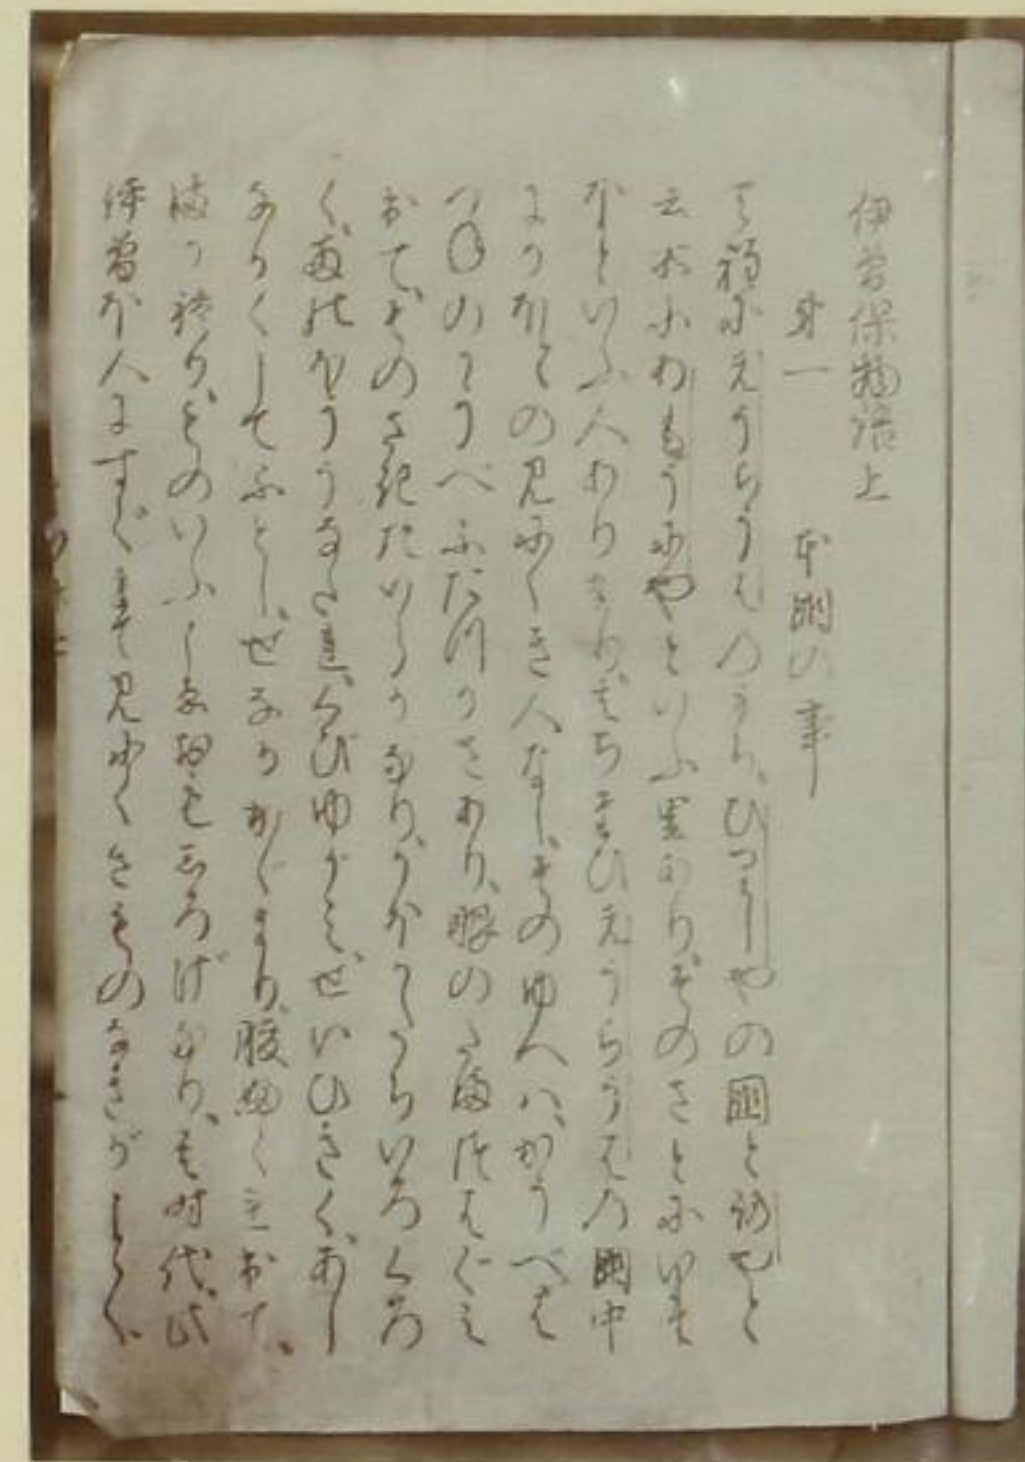 伊曾保物語上
第一　本国の事
さる程にえうらうはのうち、ひつしやの国とろやと
云所にあもうにやといふ里あり、そのさとにいそ
ほといふ人ありけり、そのころえうらうはの国中
にかほとの見にくき人なし、そのゆへは、かうべは
つねのかうべふたつかさあり、眼のたまつはぐみ
出て、そのさきたいらかなり、かほかたちいろくろ
く、両のほううなたれ、くびゆがみ、せいひきく、あし
ながくしてふとし、せなかかゞまり、腹ぬくれ出て、
まかれり、ものいふ事おもしろげなり、其時代、此
伊曾ほ人にすぐれて見にくきものなきがごとく、